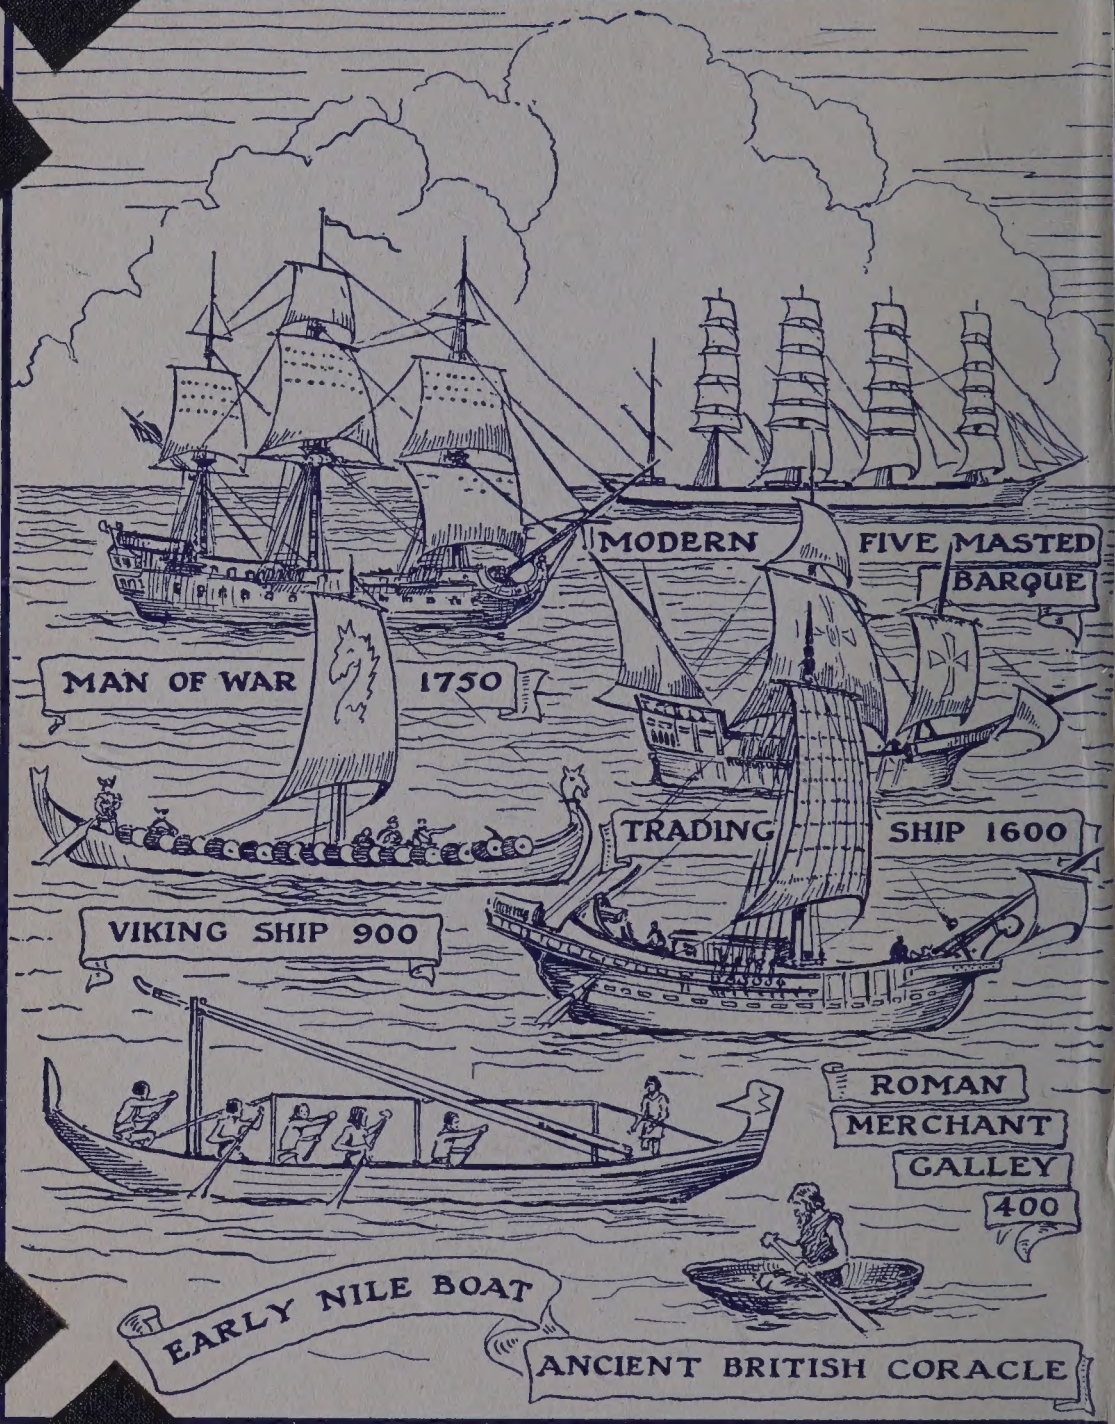 MODERN FIVE MASTED
BARQUE
MAN OF WAR 1750
TRADING SHIP 1600
VIKING SHIP 900
ROMAN
MERCHANT
GALLEY
400
EARLY NILE BOAT
ANCIENT BRITISH CORACLE